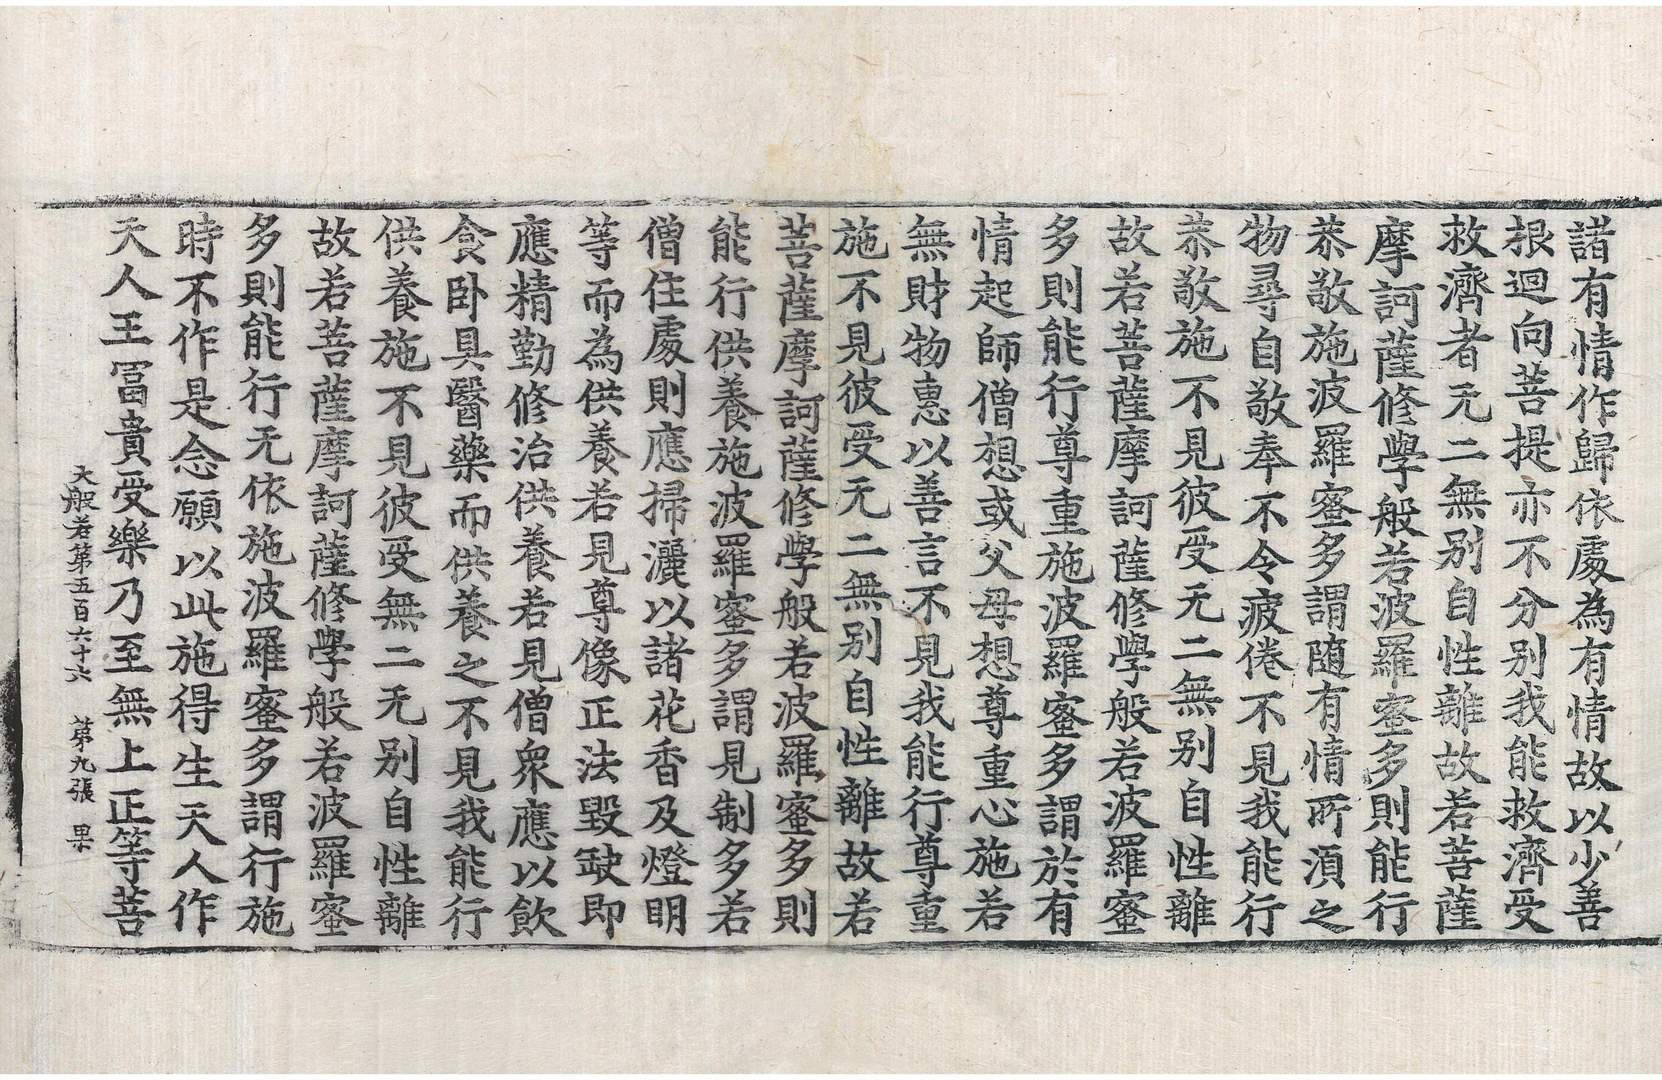 諸有情作歸依處為有情故以少善
根迴向菩提亦不分別我能救濟受
救濟者无二無別自性離故若菩薩
摩訶薩修學般若波羅蜜多則能行
恭敬施波羅蜜多謂隨有情所須之
物尋自敬奉不令疲倦不見我能行
恭敬施不見彼受无二無別自性離
故若菩薩摩訶薩修學般若波羅蜜
多則能行尊重施波羅蜜多謂於有
情起師僧想或父母想尊重心施若
無財物惠以善言不見我能行尊重
施不見彼受无二無別自性離故若
菩薩摩訶薩修學般若波羅蜜多則
能行供養施波羅蜜多謂見制多若
僧住處則應掃灑以諸花香及燈明
等而為供養若見尊像正法毀缺即
應精勤修治供養若見僧眾應以飲
食卧具醫藥而供養之不見我能行
供養施不見彼受無二无別自性離
故若菩薩摩訶薩修學般若波羅蜜
多則能行无依施波羅蜜多謂行施
時不作是念願以此施得生天人作
天人王冨貴受樂乃至無上正等菩
大般若第五百六十六 第九張 果